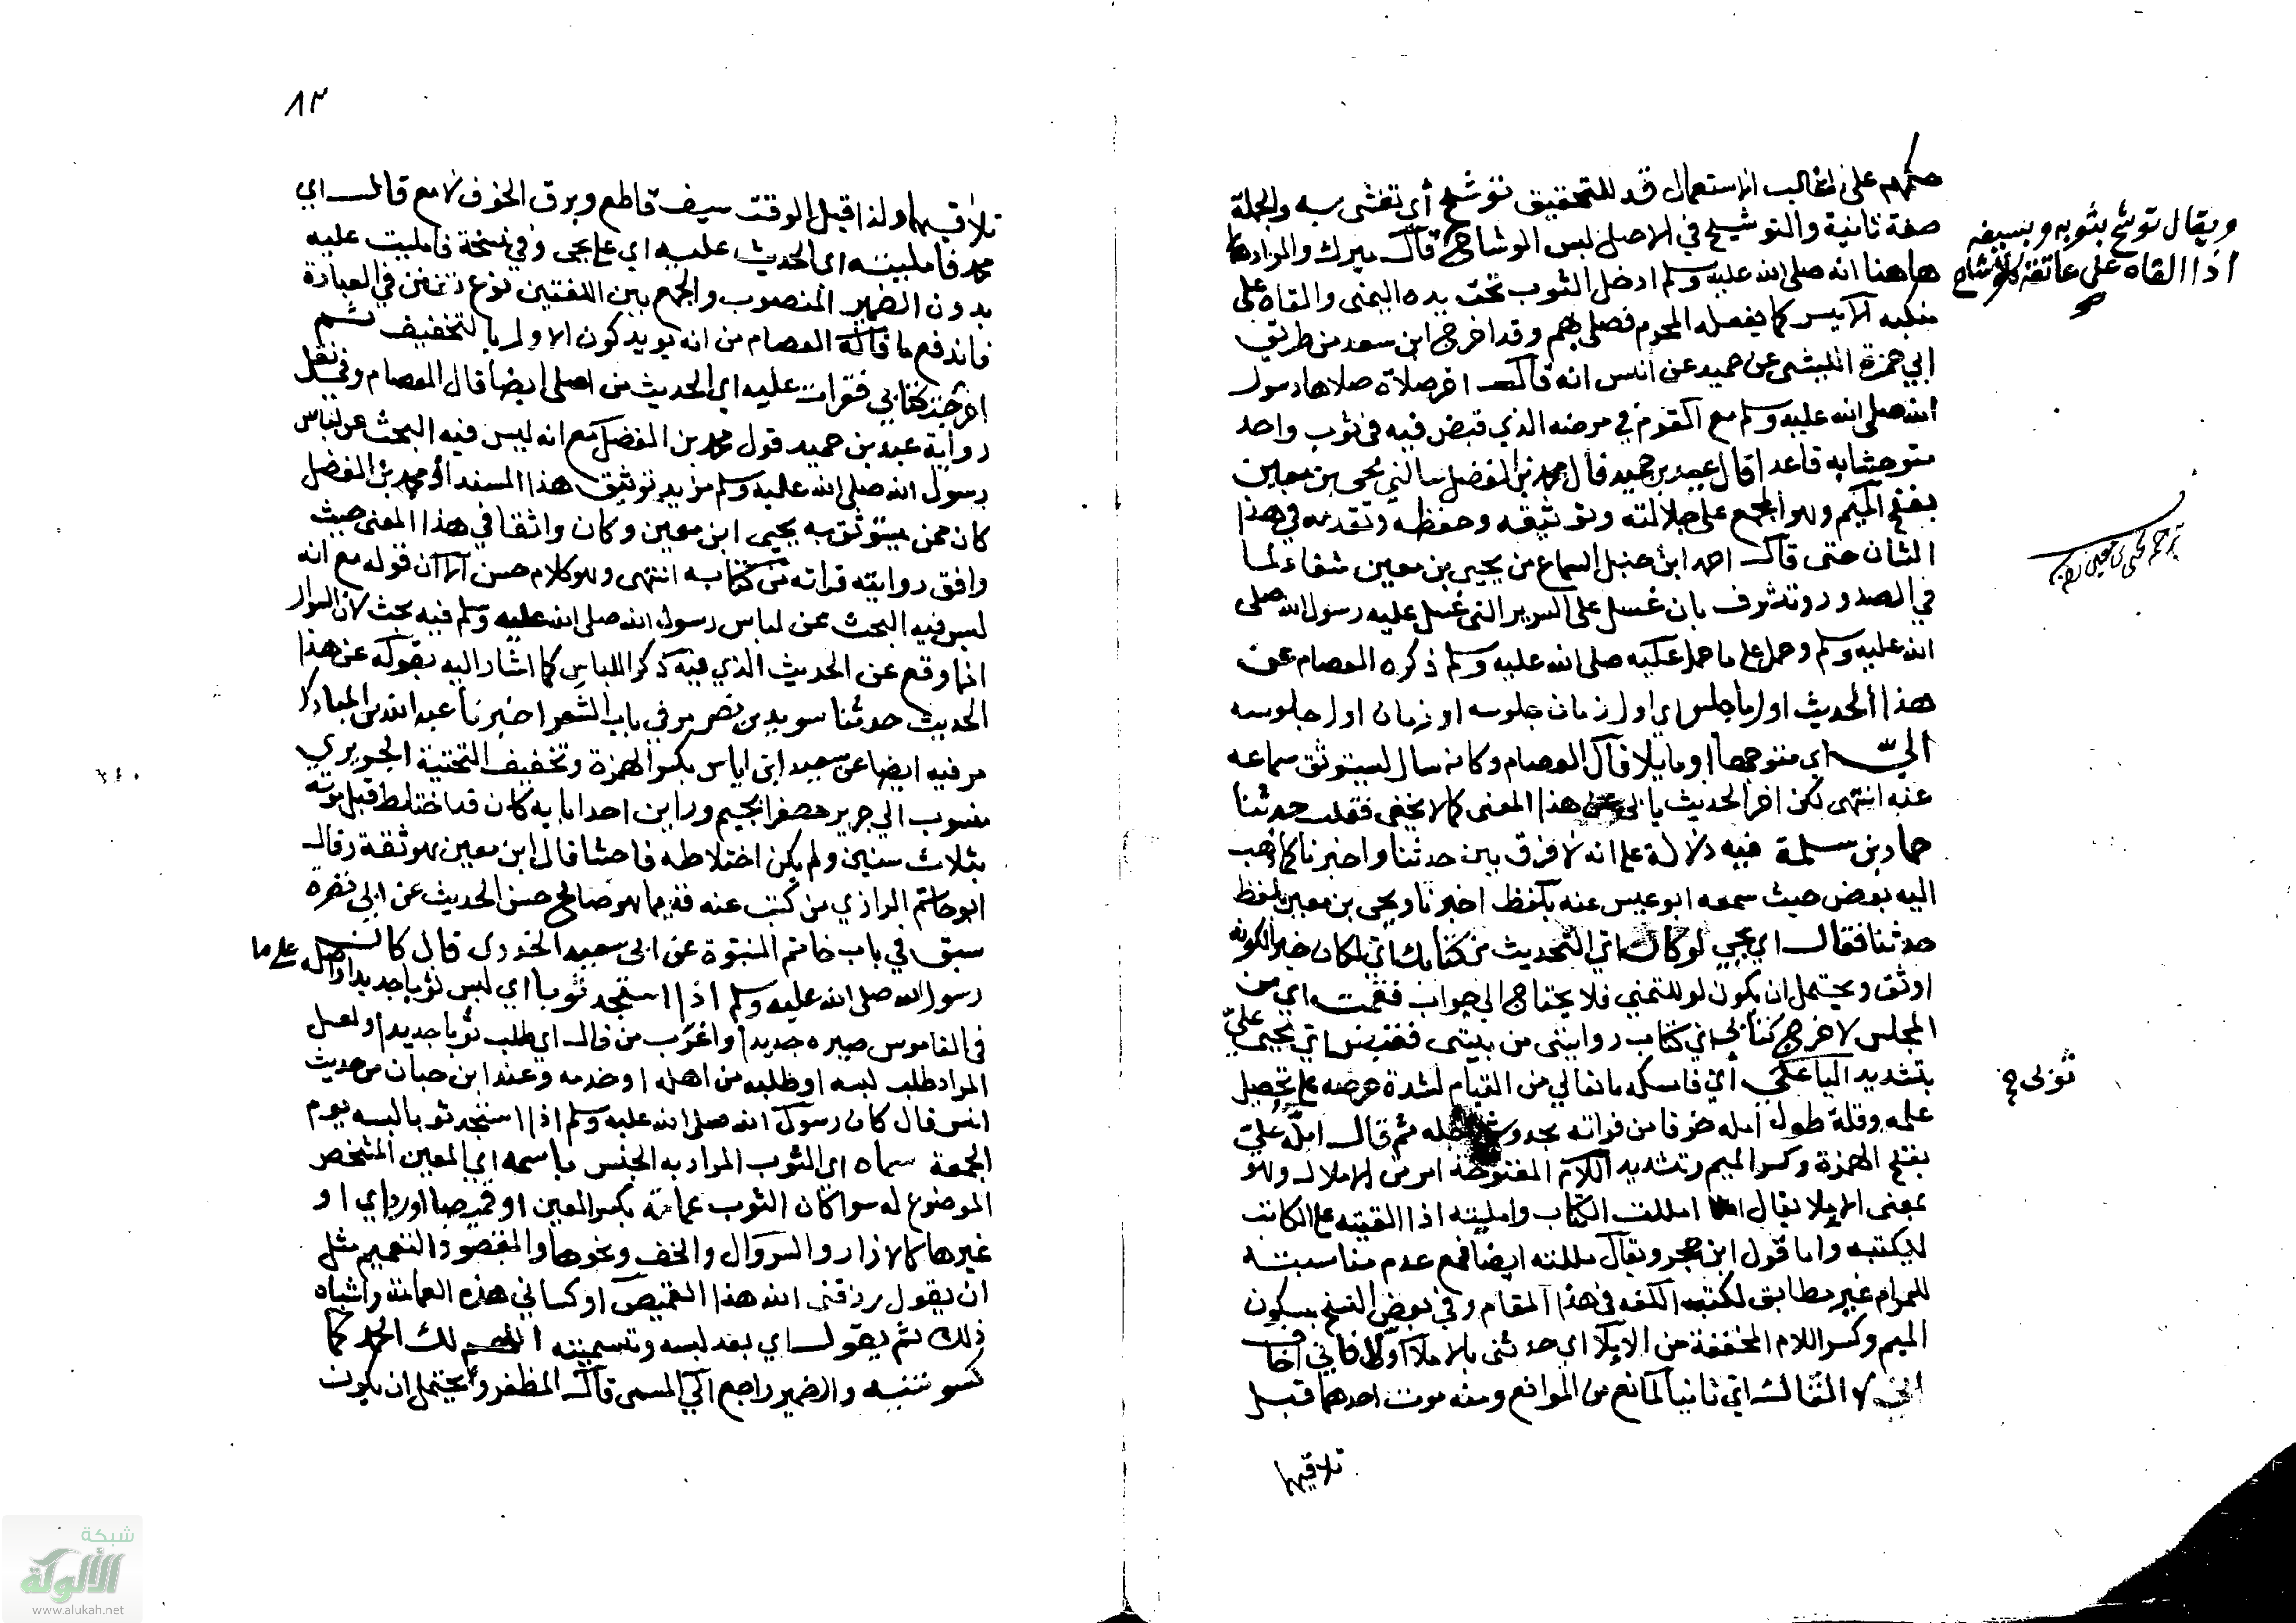 حكمهم على الغالب الاستعمال قد للتحقيق توشح أي تغشى به والجملة
صفة ثانية والتوشيح في الاصل لبس الوشاح قال ميرك والمراد
هاهنا انه صلى الله عليه وسلم ادخل الثوب تحت يده اليمنى والقاه على
منكبه الايسر كما يفعله المحرم فصلى بهم وقد اخرج ابن سعد من طريق
ابي حمزة الليثي عن حميد عن انس انه قال اخر صلاة صلاها رسول
الله صلى الله عليه وسلم مع القوم في مرضه الذي قبض فيه في ثوب واحد
متوحشا به قاعدا قال عبد بن حميد قال محمد بن الفضل سالني يحيى بن معين
بفتح الميم وهو المجمع على جلالته وتوثيقه وحفظه وتقدمه في هذا
الشان حتى قال احمد ابن حنبل السماع من يحيى بن معين شفاء لما
في الصدور وتشرف بان غسل على السرير الذي غسل عليه رسول الله صلى
الله عليه وسلم وحمل على ما حمل عليه صلى الله عليه وسلم ذكره العصام عن
هذا الحديث اول ما جلس اي اول زمان جلوسه او زمان اول جلوسه
اليّ اي متوجها او مايلا قال العصام وكانه سال ليستوثق سماعه
عنه انتهى لكن اخر الحديث يابى عن هذا المعنى كما لا يخفى فقلت حدثنا
حماد بن سلمة فيه دلالة على انه لا فرق بين حدثنا واخبرنا كما ذهب
اليه بعض حيث سمعه ابو عيسى عنه بلفظ اخبرنا ويحيى بن معين بلفظ
حدثنا فقال اي يحيى لو كان اي التحديث من كتابك اي لكان خيرا لكونه
اوثق ويحتمل ان يكون لو للتمني فلا يحتاج الى جواب فقمت اي من
المجلس لاخرج كتابي اي كتاب روايتي من بيتي فقبض اي يحيى عليّ
بتشديد اليا على أي فامسكه مانعا لي من القيام لشدة حرصه على تحصيل
علمه وقلة طول امله خوفا من فواته بحدوث اجله ثم قال امله عليّ
بفتح الهمزة وكسر الميم وتشديد اللام المفتوحة امر من الاملال وهو
بمعنى الاملا يقال امللت الكتاب وامليته اذا القيته على الكاتب
ليكتبه واما قول ابن حجر ويقال مللته ايضا فمع عدم مناسبته
للمرام غير مطابق لكتب اللغة في هذا المقام وفي بعض النسخ بسكون
الميم وكسر اللام المخففة من الاملا اي حدثني بالاملا اولا فاني اخاف
ان لا القاك اي ثانيا لمانع من الموانع ومنه موت احدهما قبل
تلاقيهما
ويقال توشح بثوبه وبسيفه
اذا القاه على عاتقه كالوشاح
ترجمة يحيى بن معين
ثوبي خ
٨٣
تلاقيهما ولذا قيل الوقت سيف قاطع وبرق الخوف لامع قال اي
محمد فامليته اي الحديث عليه اي على يحيى وفي نسخة فامليت عليه
بدون الضمير المنصوب والجمع بين اللغتين نوع تفنن في العبارة
فاندفع ما قاله العصام من انه يويد كون الاول بالتخفيف ثم
اخرجت كتابي فقرات عليه اي الحديث من اصلي ايضا قال العصام وفي نقل
رواية عبد بن حميد قول محمد بن الفضل مع انه ليس فيه البحث عن لباس
رسول الله صلى الله عليه وسلم مزيد توثيق هذا المسند اذ محمد بن الفضل
كان ممن يستوثق به يحيى ابن معين وكان واثقا في هذا المعنى حيث
وافق روايته قراته من كتابه انتهى وهو كلام حسن الا ان قوله مع انه
ليس فيه البحث عن لباس رسول الله صلى الله عليه وسلم فيه بحث لان السوال
انما وقع عن الحديث الذي فيه ذكر اللباس كما اشار اليه بقوله عن هذا
الحديث حدثنا سويد بن نصر مر في باب الشعر اخبرنا عبد الله بن المبارك
مر فيه ايضا عن سعيد ابن اياس بكسر الهمزة وتخفيف التحتية الجريري
منسوب الى جرير مصغرا بجيم وراين احد ابايه كان قد اختلط قبل موته
بثلاث سنين ولم يكن اختلاطه فاحشا قال ابن معين هو ثقة وقال
ابو حاتم الرازي من كتب عنه قديما هو صالح حسن الحديث عن ابي نضرة
سبق في باب خاتم النبوة عن ابي سعيد الخدري قال كان
رسول الله صلى الله عليه وسلم اذا استجد ثوبا اي لبس ثوبا جديدا واصله على ما
في القاموس صيره جديدا واغرب من قال اي طلب ثوبا جديدا ولعل
المراد طلب لبسه او طلبه من اهله او خدمه وعند ابن حبان من حديث
انس قال كان رسول الله صلى الله عليه وسلم اذا استجد ثوبا لبسه يوم
الجمعة سماه اي الثوب المراد به الجنس باسمه اي المعين المشخص
الموضوع له سوا كان الثوب عمامة بكسر العين او قميصا او رداي او
غيرها كالازار والسروال والخف ونحوها والمقصود التعميم مثل
ان يقول رزقني الله هذا القميص او كساني هذه العمامة واشباه
ذلك ثم يقول اي بعد لبسه وتسميته اللهم لك الحمد كما
كسوتنيه والضمير راجع الى المسمى قال المظفر ويحتمل ان يكون
شبكة
الألوكة
www.alukah.net